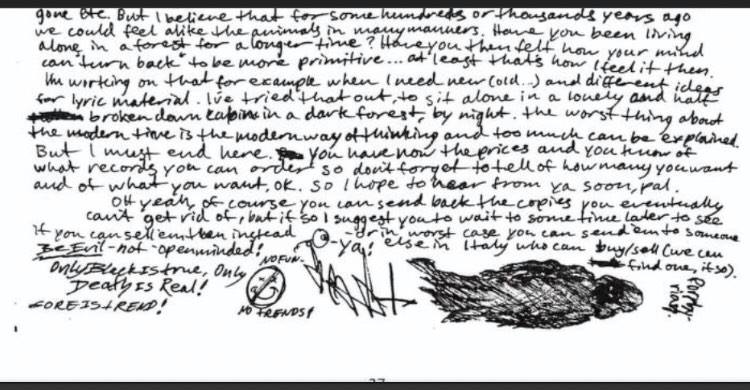 gone etc. But I believe that for some hundreds or thousands years ago
we could feel alike the animals in many manners. Have you been living
alone in a forest for a longer time? Have you then felt how your mind
can "turn back" to be more primitive... at least that's how I feel it then.
I'm working on that for example when I need new (old...) and different ideas
for lyric material. I've tried that out, to sit alone in a lonely and half
broken down cabin in a dark forest, by night. the worst thing about
the modern time is the modern way of thinking and too much can be explained.
But I must end here. you have now the prices and you know of
what records you can order so don't forget to tell of how many you want
and of what you want, OK. so I hope to hear from ya soon, pal.
OH yeah, of course you can send back the copies you eventually
can't get rid of, but if so I suggest you to wait to some time later to see
if you can sell em then instead -or in worst case you can send em to someone
Be Evil - not openminded! -ya! else in Italy who can buy/sell (we can
find one, if so).
Only Black is true, Only
Death is Real!
CORE IS TREND!
NO FUN-
NO TRENDS!
27